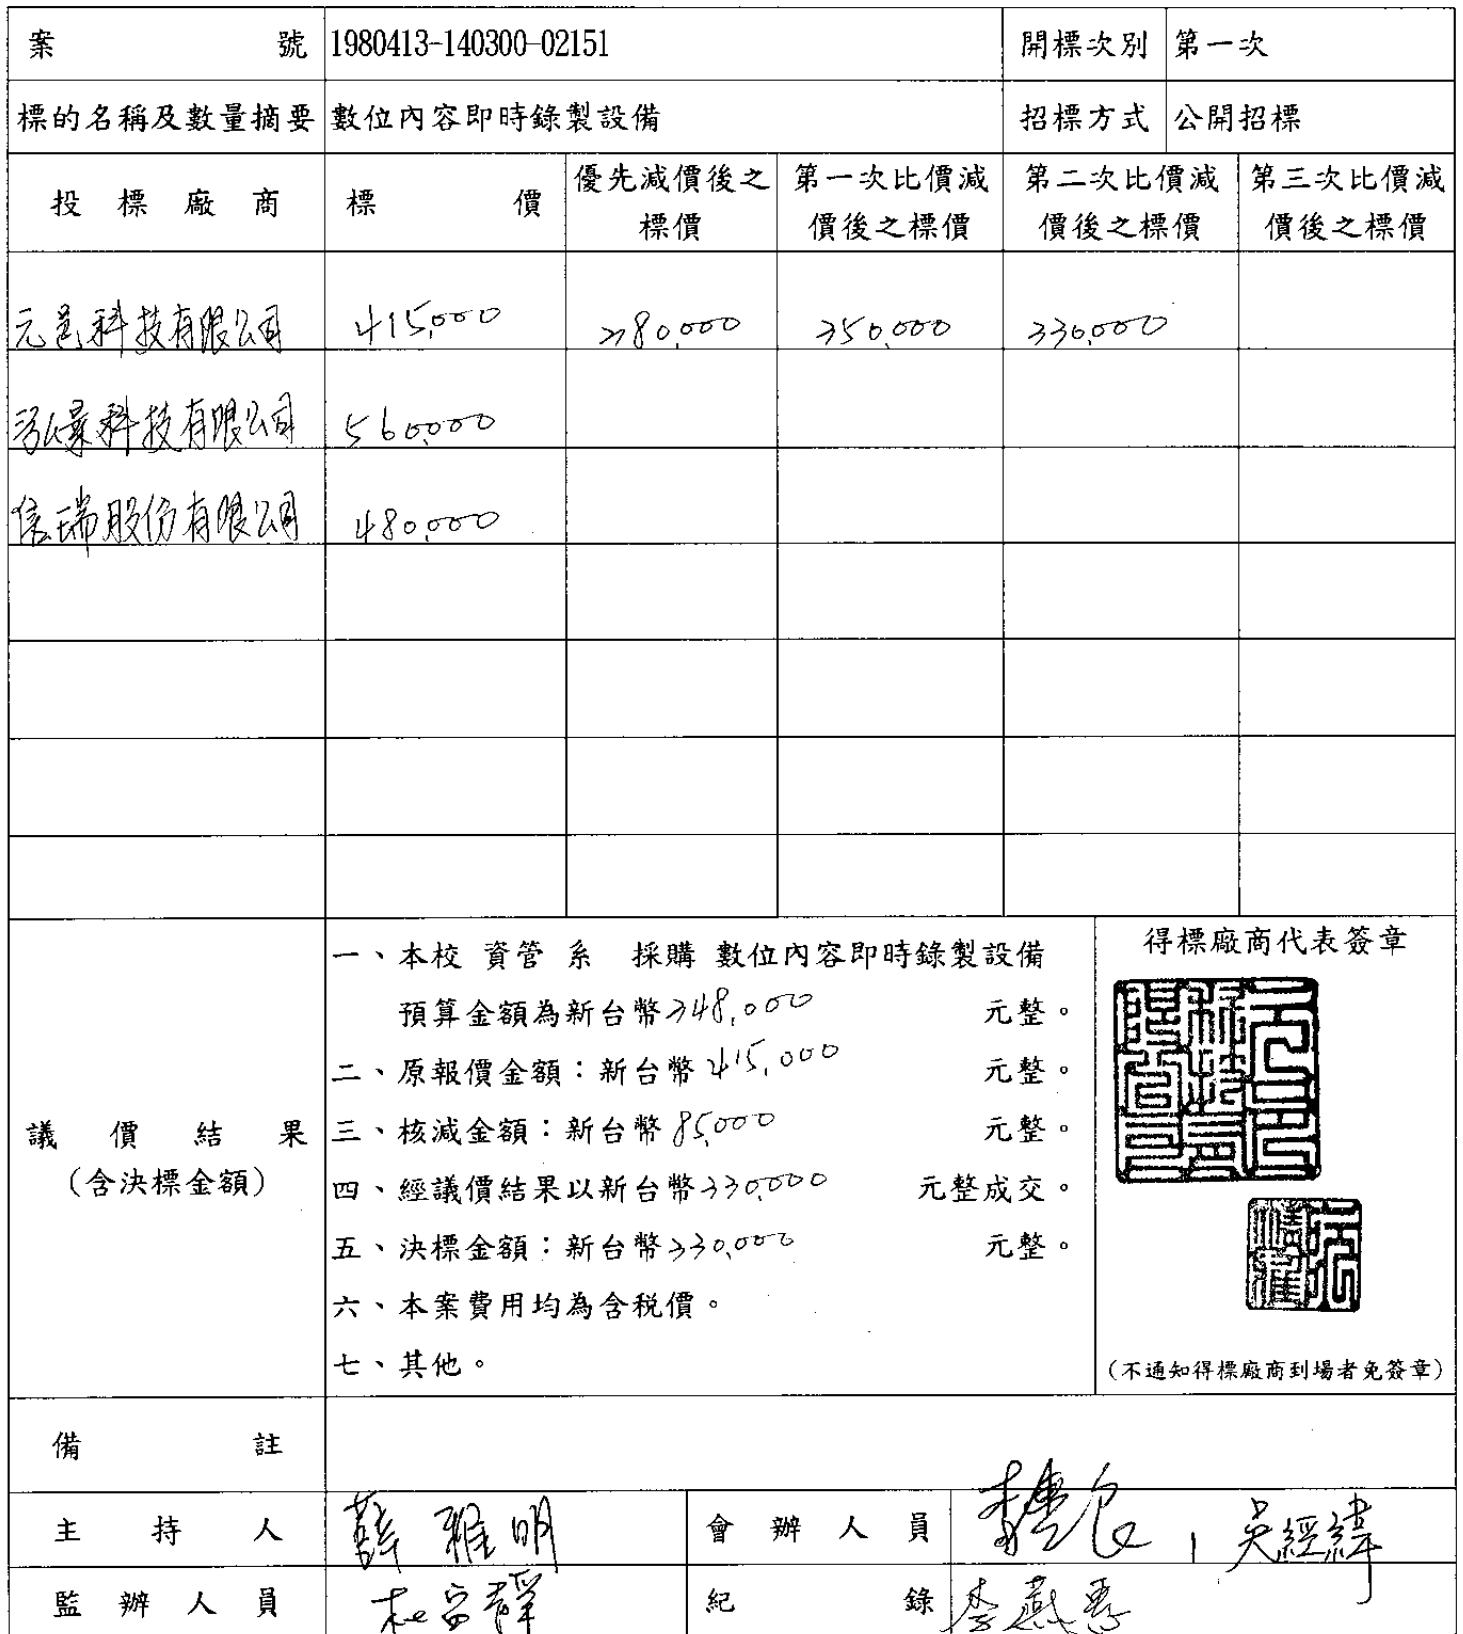 案號 1980413-140300-02151 開標次別 第一次
標的名稱及數量摘要 數位內容即時錄製設備 招標方式 公開招標
投標廠商 標價 優先減價後之標價 第一次比價減價後之標價 第二次比價減價後之標價 第三次比價減價後之標價
元邑科技有限公司 415,000 380,000 350,000 330,000
泓景科技有限公司 560,000
信瑞股份有限公司 480,000
議價結果
(含決標金額)
一、本校 資管 系 採購 數位內容即時錄製設備
預算金額為新台幣348,000 元整。
二、原報價金額：新台幣415,000 元整。
三、核減金額：新台幣85,000 元整。
四、經議價結果以新台幣330,000 元整成交。
五、決標金額：新台幣330,000 元整。
六、本案費用均為含稅價。
七、其他。
得標廠商代表簽章
(不通知得標廠商到場者免簽章)
備註
主持人 薛雅明 會辦人員 吳經緯
監辦人員 紀錄